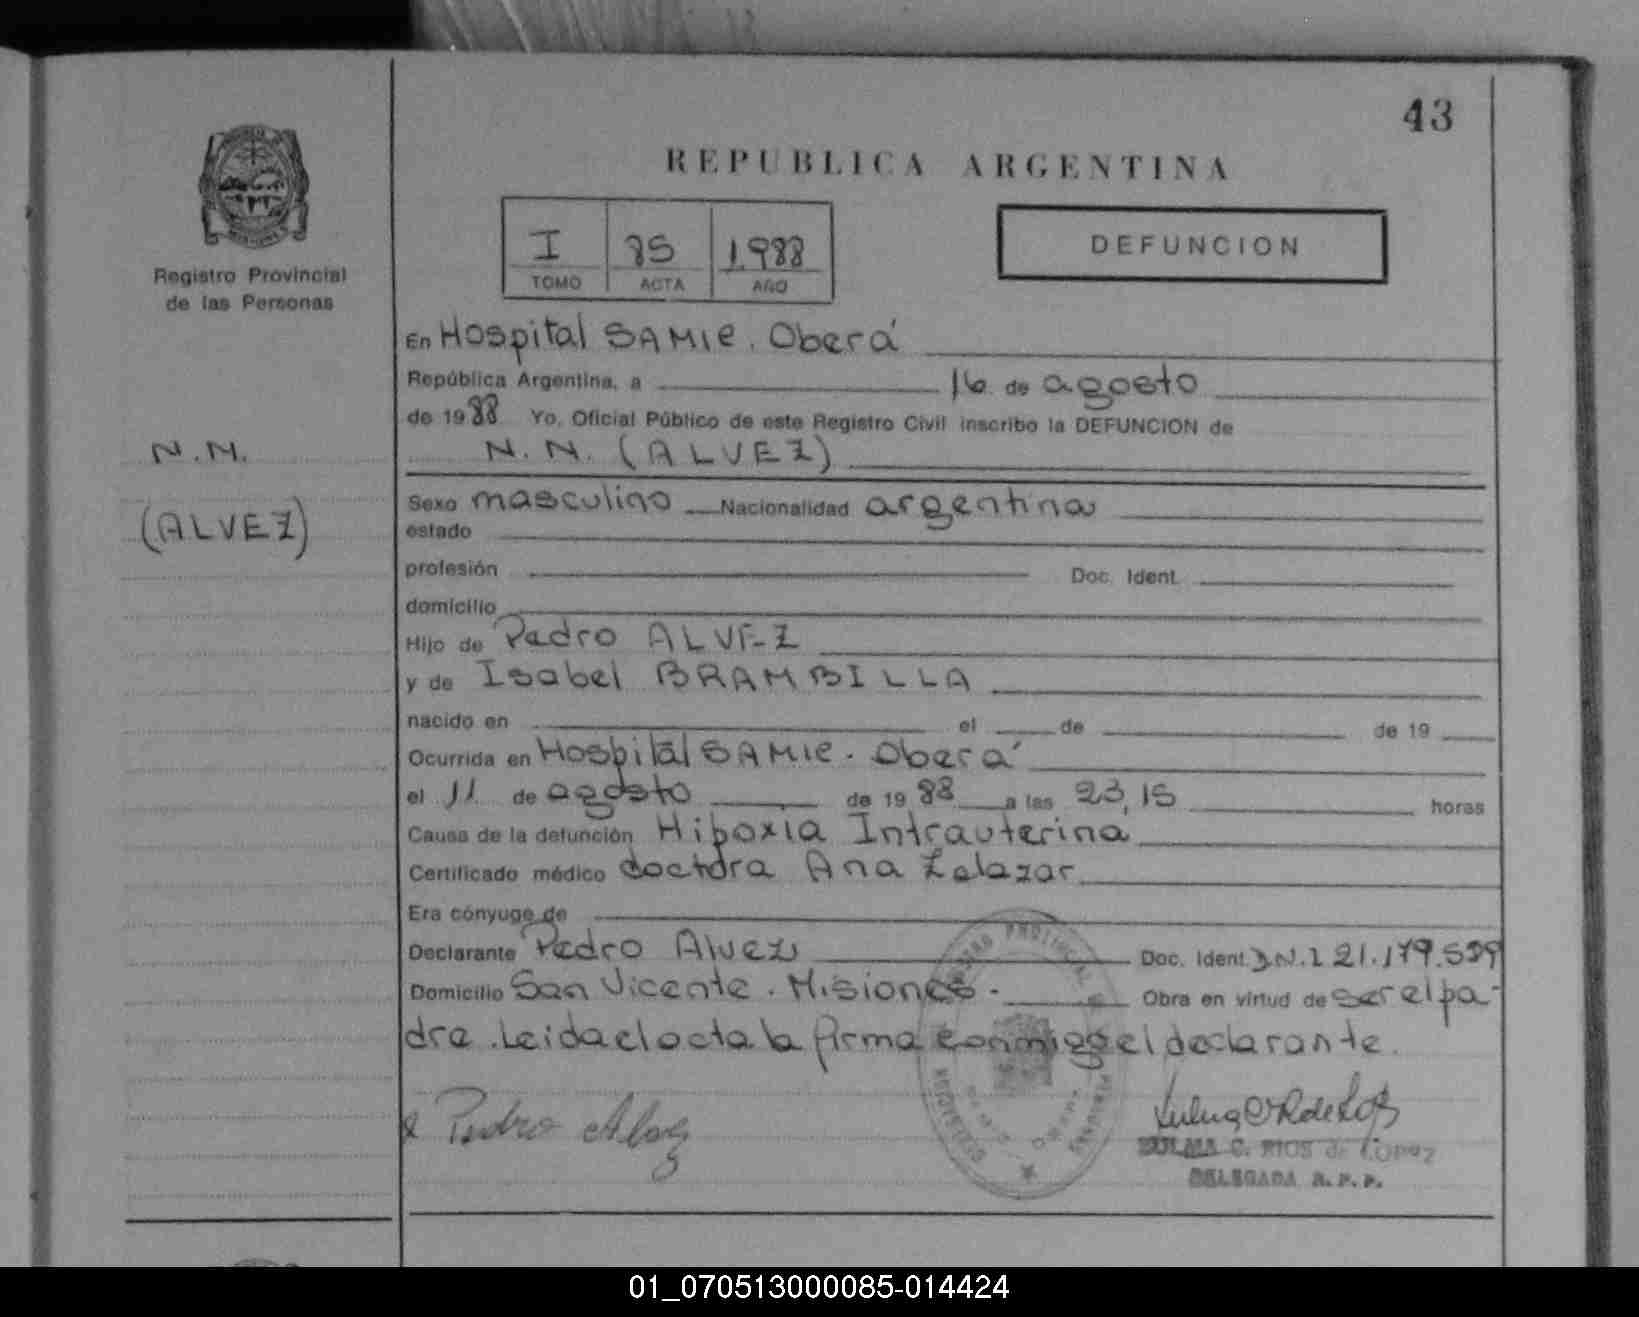 43
REPUBLICA ARGENTINA
I 85 1988
TOMO ACTA AÑO
DEFUNCION
Registro Provincial
de las Personas
En Hospital SAMIC. Oberá
República Argentina, a 16 de agosto
de 1988 Yo, Oficial Público de este Registro Civil inscribo la DEFUNCION de
N.N. (ALVEZ)
N.N.
(ALVEZ)
Sexo masculino Nacionalidad argentina
estado
profesión Doc. Ident.
domicilio
Hijo de Pedro ALVEZ
y de Isabel BRAMBILLA
nacido en el de de 19
Ocurrida en Hospital SAMIC. Oberá
el 11 de agosto de 1988 a las 23,15 horas
Causa de la defunción Hipoxia Intrauterina
Certificado médico doctora Ana Zalazar
Era cónyuge de
Declarante Pedro Alvez Doc. Ident. D.N.I 21.179.599
Domicilio San Vicente. Misiones.- Obra en virtud de ser el pa-
dre. Leida el acta la firma conmigo el declarante.
Pedro Alvez
ZULMA C. RIOS de LOPEZ
DELEGADA R.P.P.
01_070513000085-014424